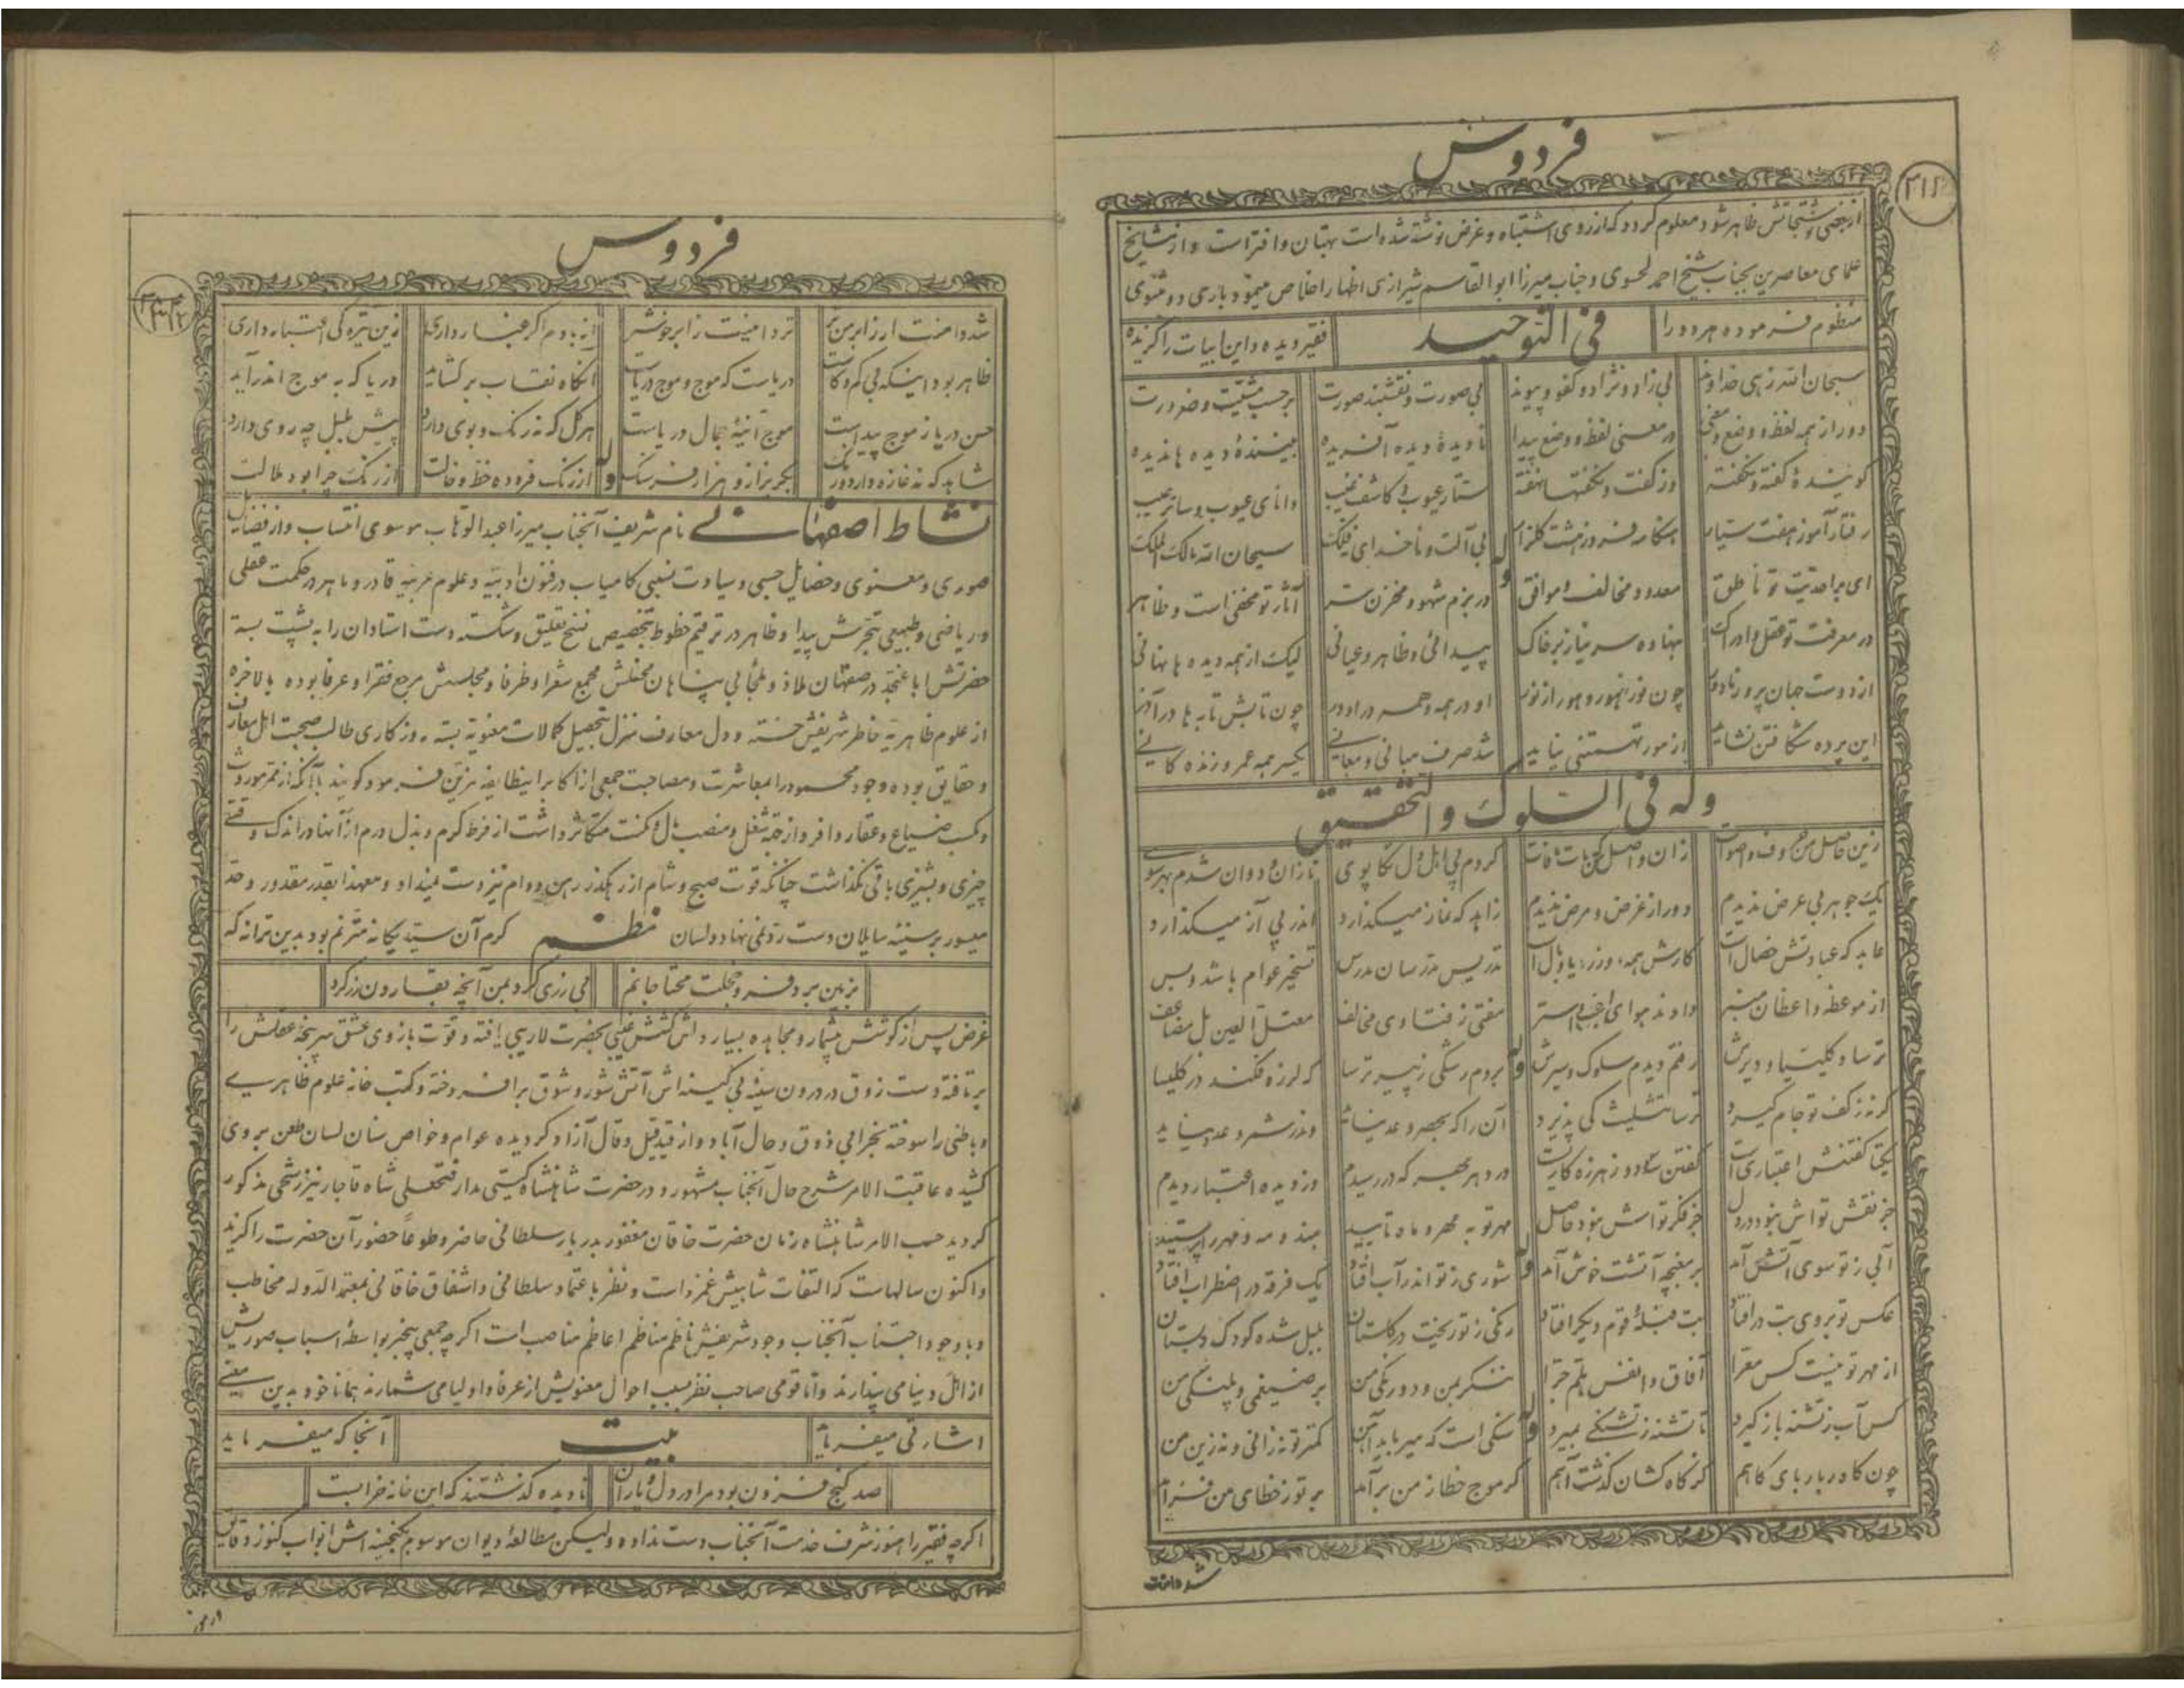 فردوس
از بعضی منتجاتش ظاهر شود معلوم گردد که از روی اشتباه و غرض نوشته شده است بهتان و افتراست و از مشایخ
علمای معاصرین بجناب شیخ احمد لحسوی و جناب میرزا ابوالقاسم شیرازی اظهار اخلاص مینمود باری دو مثنوی
منظوم فرموده هر دو را فی التوحید فقیر دیده و این ابیات را گزیده
سبحان الله زهی خداوند بی زاد و نژاد و کفو و پیوند بی صورت و نقشبند صورت بر حسب مشیت و ضرورت
دور از همه لفظ و وضع و معنی در معنی لفظ و وضع پیدا نادیدهٔ دیده آفریده بینندهٔ دیده ها ندیده
گویندهٔ گفته و نگفته وز گفت و نگفتها نهفته ستار عیوب و کاشف غیب دانای عیوب و ساتر عیب
رفتار آموز هفت سیار هنگامه فروز هشت گلزار وله بی آلت و ناخدای فلک سبحان الله مالک الملک
ای بر احدیت تو ناطق معدود و مخالف و موافق در بزم شهود و مخزن آثار تو مخفی است و ظاهر
در معرفت تو عقل و ادراک بنهاده سر نیاز بر خاک پیدائی و ظاهر و عیانی لیکن از همه دیده ها نهانی
از دوست جهان پر و نه از دوست چون نور ز هور و هور از نور او در همه و همه در او در چون تابش تابه ها در آذر
این پرده شکافتن نشاید از مور تهمتنی نیاید شد صرف مبانی و معانی یکسر همه عمر و زندگانی
وله فی السلوک والتحقیق
زین حاصل من حروف و اصوات زان واصل من بات و فات کردم پی اهل دل تکاپوی تازان و دوان شدم بهر سوی
یک جوهر بی عرض ندیدم دور از غرض و مرض ندیدم زاهد که نماز میگذارد اندر پی آز میگذارد
عابد که عبادتش خصال است کارش همه وزر یا وبال است تدریس مدرسان مدرس تسخیر عوام باشد و بس
از موعظه واعظان منبر دادند هوای مفتی ز فتاوی مخالف معتل العین بل مضاعف
ترسا و کلیسیا و دیرش رفتم دیدم سلوک و سیرش وله بردم رشکی ز پیر ترسا که لرزه فکند در کلیسا
گر نه ز کف تو جام گیرد ترسا تثلیث کی پذیرد آن را که بحصر و عد نیاید وندر شمر و عدد نیاید
یکتا گفتنش اعتباری است گفتن سه و دو ز هرزه کاریست در دهر بهر که در رسیدم وز دیده اعتبار دیدم
جز نقش تواش نبود در دل جز فکر تواش نبود حاصل مهر تو به مهر و ماه تابید هندو مه و مهر را پرستید
آبی ز تو سوی آتش آمد بر مغبچه آتشت خوش آمد وله شوری ز تو اندر آب افتاد یک فرقه در اضطراب افتاد
عکس تو بروی بت در افتاد بت قبلهٔ قوم دیگر افتاد رنگی ز تو ریخت در گلستان بلبل شده کودک دبستان
از مهر تو نیست کس معرا آفاق و انفس هلم جرا منگر بمن و دو رنگی من بر ضیغمی و پلنگی من
کس آب ز تشنه باز گیرد تا تشنه ز تشنگی بمیرد وله سنگی است که میرباید آهن کمتر تو نه زانی و نه زین من
چون کاه دربار بای کاهم گر کاه کشان گذشت آهم گر موج خطا ز من بر آمد بر تو ز خطای من
شد دامنت
فردوس
شد دامنت ار ز ابر من تر دامنیت ز ابر خود شر از بادم اگر غبار داری زین تیرگی اعتبار داری
ظاهر بود اینکه بی کم و کاست دریاست که موج و موج دریاست آنگاه نقاب بر گشاید دریا که به موج اندر آید
حسن دریا ز موج پیداست موج آینهٔ جمال دریاست هر گل که نه رنگ و بوی دارد پیش بلبل چه روی دارد
شاهد که نه غازه دارد و رنگ بگریز ازو هزار فرسنگ وله از رنگ فزوده خط و خالت از رنگ چرا بود ملالت
نشاط اصفهانی نام شریف آنجناب میرزا عبدالوهاب موسوی انتساب و از فضایل
صوری و معنوی و خصایل حسبی و سیادت نسبی کامیاب در فنون ادبیه و علوم عربیه قادر و ماهر در حکمت عقلی
و ریاضی و طبیعی تبحرش پیدا و ظاهر در ترقیم خطوط بتخصیص نسخ تعلیق و شکسته دست استادان را به پشت بسته
حضرتش اباعنجد در صفهان ملاذ و ملجأ بی پناهان محفلش مجمع شعرا و ظرفا و مجلسش مرجع فقرا و عرفا بوده بالاخره
از علوم ظاهریه خاطر شریفش خسته و دل معارف منزل بتحصیل کمالات معنویه بسته روزگاری طالب صحبت اهل معارف
و حقایق بوده وجود محمود را بمعاشرت و مصاحبت جمعی از اکابر اینطایفه مزین فرمود گویند با آنکه از ممر موروث
و کسب ضیاع و عقار وافر و از جهة شغل و منصب مال و مکنت متکاثر داشت از فرط کرم و بذل درم از آنها در اندک وقتی
چیزی و پشیزی باقی نگذاشت چنانکه قوت صبح و شام از رهگذر رهن و وام نیز دست نمیداد و معهذا بقدر مقدور و حد
میسور بر سینه سایلان دست رد نمی نهاد و لسان نظم کرم آن سید یگانه مترنم بود بدین ترانه که
بزمین برد فرو خجلت محتاجانم بی زری کرد بمن آنچه بقارون زر کرد
غرض پس از کوشش بیشمار و مجاهده بسیار دلش کشش غیبی بحضرت لاریبی یافته و قوت بازوی عشق سر پنجه عقلش را
بر تافته دست ذوق در درون سینه بی کینه اش آتش شور و شوق بر افروخته و کتب خانه علوم ظاهری
و باطنی را سوخته بخرابی ذوق و حال آباد و از قید قیل و قال آزاد گردیده عوام و خواص سنان لسان طعن بر وی
کشیده عاقبت الامر شرح حال آنجناب مشهور و در حضرت شاهنشاه گیتی مدار فتحعلی شاه قاجار نیز رشحی مذکور
گردید حسب الامر شاهنشاه زمان حضرت خاقان مغفور بدربار سلطانی حاضر و طوعا حضور آن حضرت را گزید
و اکنون سالهاست که التفات شاهیش غمزداست و نظر باعتماد سلطانی و اشفاق خاقانی بمعتمد الدوله مخاطب
و با وجود اجتناب آنجناب وجود شریفش ناظم مناظم اعاظم مناصب است اگرچه جمعی بیخبر بواسطهٔ اسباب صوریش
از اهل دنیا می پندارند و اما قومی صاحب نظر بسبب احوال معنویش از عرفا و اولیا می شمارند همانا خود بدین معنی
اشارتی میفرماید بیت آنجا که میفرماید
صد گنج فزون بود مرا در دل و یاران نادیده گذشتند که این خانه خرابست
اگرچه فقیر را هنوز شرف خدمت آنجناب دست نداده ولیکن مطالعهٔ دیوان موسوم بگنجینه اش ابواب کنوز دقایق